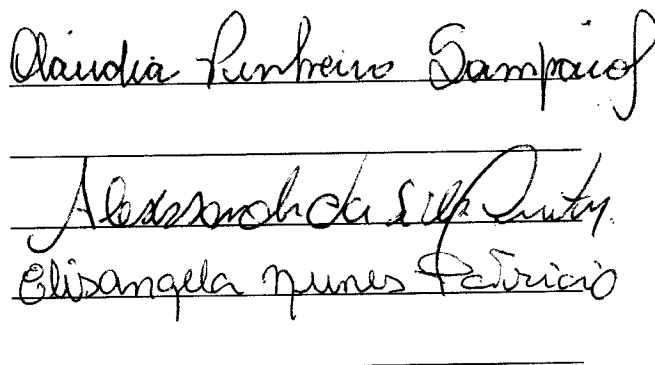 Cláudia Pinheiro Sampaio
Alexssandra da Silva
Elisangela nunes Patricio